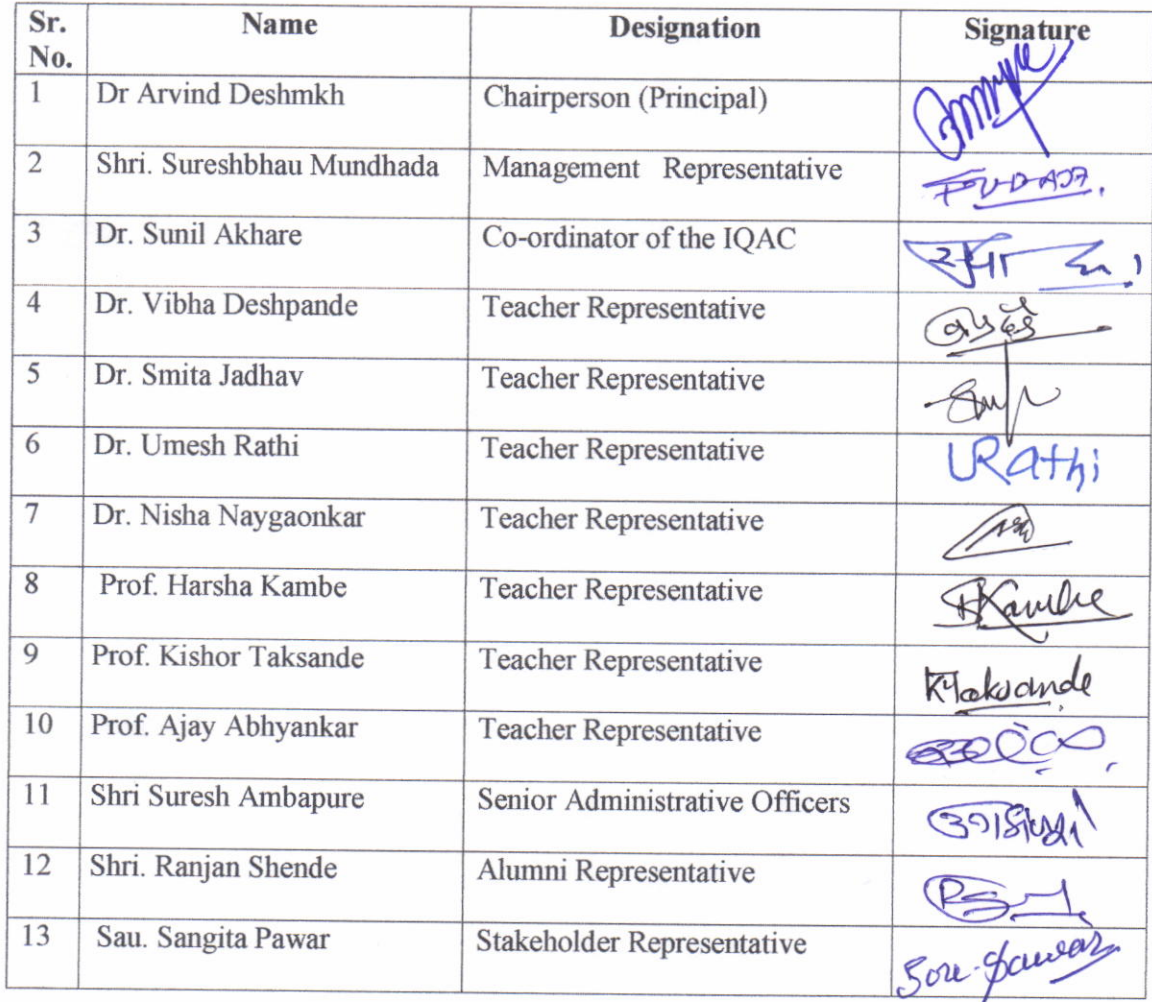 Sr. No. Name Designation Signature
1 Dr Arvind Deshmkh Chairperson (Principal)
2 Shri. Sureshbhau Mundhada Management Representative
3 Dr. Sunil Akhare Co-ordinator of the IQAC
4 Dr. Vibha Deshpande Teacher Representative
5 Dr. Smita Jadhav Teacher Representative
6 Dr. Umesh Rathi Teacher Representative URathi
7 Dr. Nisha Naygaonkar Teacher Representative
8 Prof. Harsha Kambe Teacher Representative HKambe
9 Prof. Kishor Taksande Teacher Representative KTaksande
10 Prof. Ajay Abhyankar Teacher Representative
11 Shri Suresh Ambapure Senior Administrative Officers
12 Shri. Ranjan Shende Alumni Representative
13 Sau. Sangita Pawar Stakeholder Representative